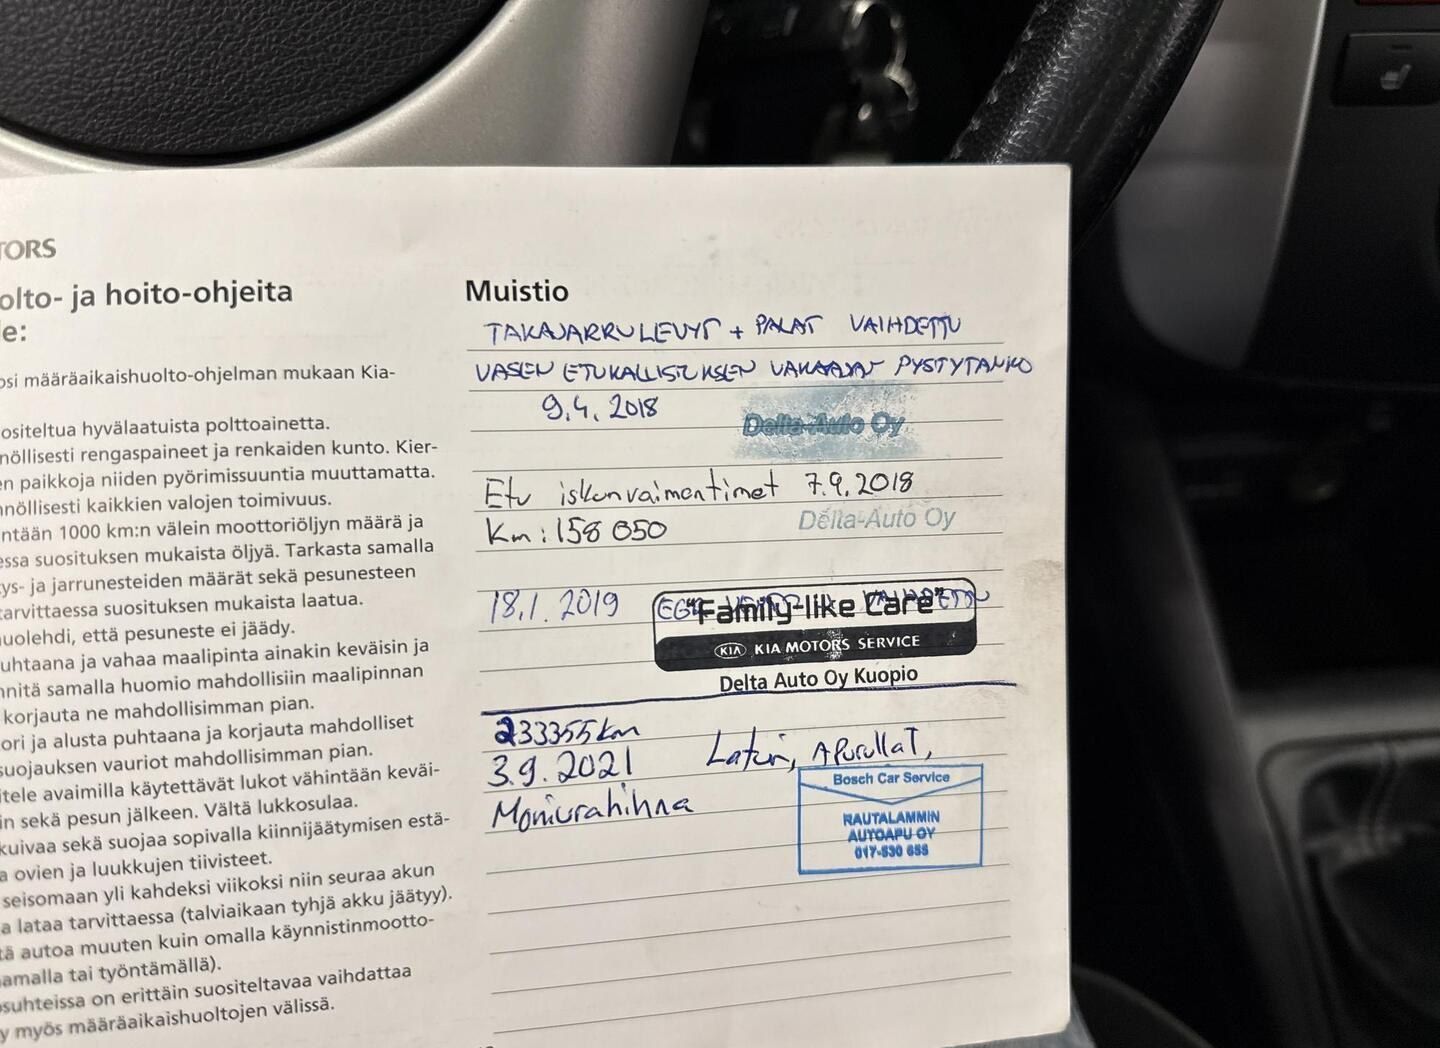 TORS
olto- ja hoito-ohjeita
le:
osi määräaikaishuolto-ohjelman mukaan Kia-
ositeltua hyvälaatuista polttoainetta.
nöllisesti rengaspaineet ja renkaiden kunto. Kier-
en paikkoja niiden pyörimissuuntia muuttamatta.
nnöllisesti kaikkien valojen toimivuus.
ntään 1000 km:n välein moottoriöljyn määrä ja
essa suosituksen mukaista öljyä. Tarkasta samalla
tys- ja jarrunesteiden määrät sekä pesunesteen
tarvittaessa suosituksen mukaista laatua.
huolehdi, että pesuneste ei jäädy.
uhtaana ja vahaa maalipinta ainakin keväisin ja
nnitä samalla huomio mahdollisiin maalipinnan
korjauta ne mahdollisimman pian.
ori ja alusta puhtaana ja korjauta mahdolliset
suojauksen vauriot mahdollisimman pian.
itele avaimilla käytettävät lukot vähintään keväi-
in sekä pesun jälkeen. Vältä lukkosulaa.
kuivaa sekä suojaa sopivalla kiinnijäätymisen estä-
a ovien ja luukkujen tiivisteet.
seisomaan yli kahdeksi viikoksi niin seuraa akun
a lataa tarvittaessa (talviaikaan tyhjä akku jäätyy).
tä autoa muuten kuin omalla käynnistinmootto-
amalla tai työntämällä).
osuhteissa on erittäin suositeltavaa vaihdattaa
y myös määräaikaishuoltojen välissä.
Muistio
TAKAJARRULEVYT + PALAT VAIHDETTU
VASEN ETUKALLISTUKSEN VAKAAJAN PYSTYTANKO
9.4. 2018
Delta-Auto Oy
Etu iskunvaimentimet 7.9.2018
Km: 158 050
Delta-Auto Oy
18.1. 2019 VAIHDETTU
"Family-like Care"
KIA KIA MOTORS SERVICE
Delta Auto Oy Kuopio
233355km
3.9.2021 Laturi, Apurullat,
Moniurahihna
Bosch Car Service
RAUTALAMMIN
AUTOAPU OY
017-530 655